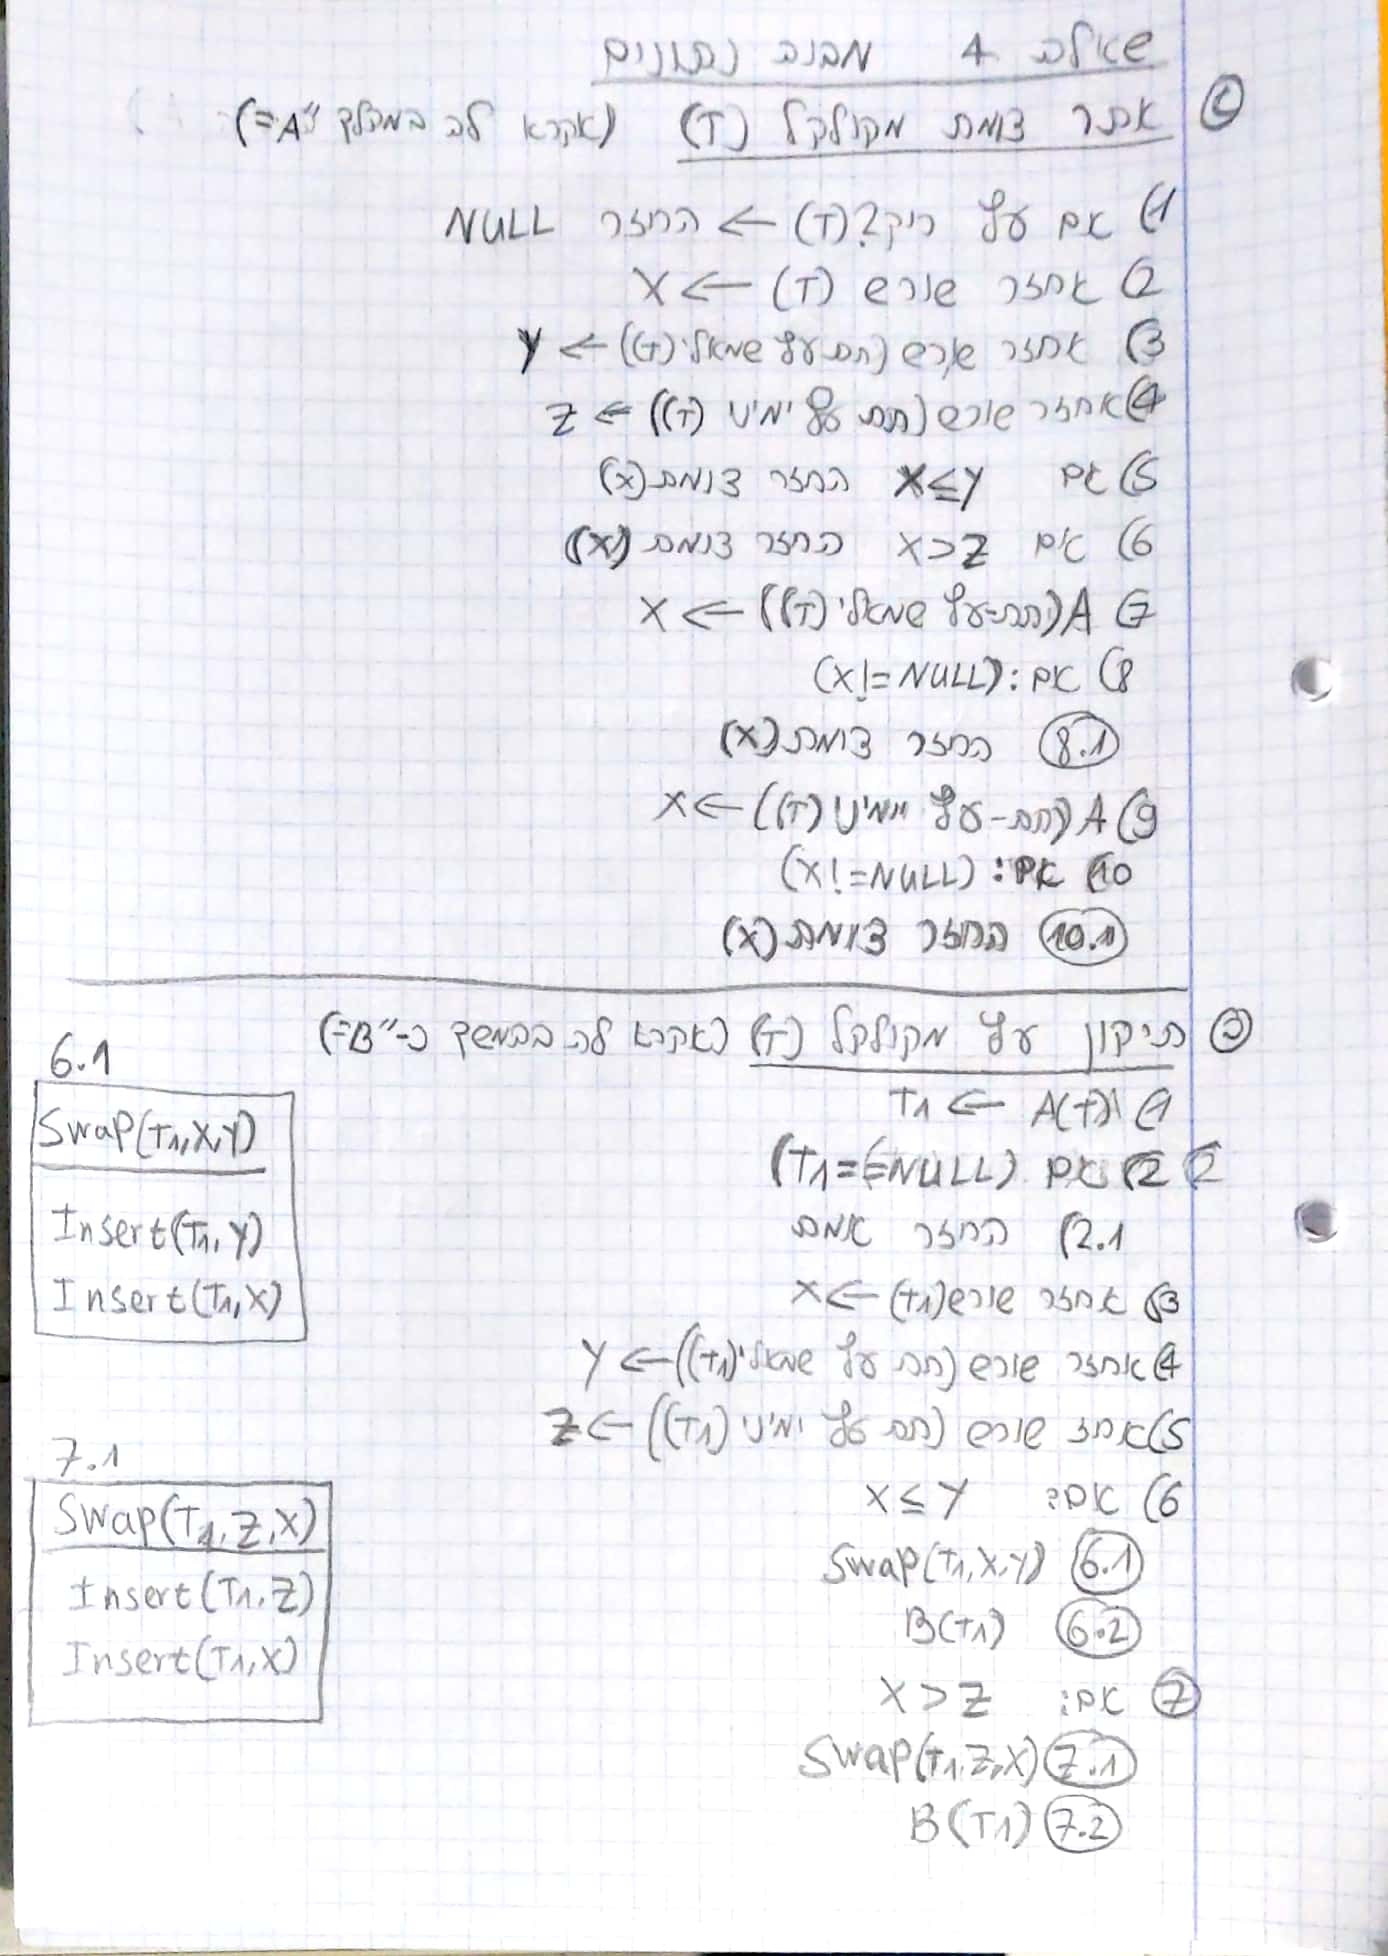 שאלה 4 מבנה נתונים
א אתר צומת מקולקל (T) (אקרא לה במהלך "A"=)
1) אם עץ ריק?(T) ← החזר NULL
2) אחזר שורש (T) ← X
3) אחזר שורש (תת עץ שמאלי(T)) ← Y
4) אחזר שורש (תת עץ ימיני (T)) ← Z
5) אם X≤Y החזר צומת(X)
6) אם X>Z החזר צומת (X)
7) A(תת-עץ שמאלי(T)) ← X
8) אם: (X!=NULL)
8.1 החזר צומת(X)
9) A(תת-עץ ימיני(T)) ← X
10) אם: (X!=NULL)
10.1 החזר צומת(X)
ב תיקון עץ מקולקל (T) (אקרא לה בהמשך כ-"B"=)
1) A(T) ← T1
2) אם (T1==NULL)
2.1) החזר אמת
3) אחזר שורש(T1) ← X
4) אחזר שורש (תת עץ שמאלי(T1)) ← Y
5) אחזר שורש (תת עץ ימיני (T1)) ← Z
6) אם: X≤Y
6.1 Swap(T1,X,Y)
6.2 B(T1)
7 אם: X>Z
7.1 Swap(T1,Z,X)
7.2 B(T1)
6.1
Swap(T1,X,Y)
Insert(T1,Y)
Insert(T1,X)
7.1
Swap(T1,Z,X)
Insert(T1,Z)
Insert(T1,X)